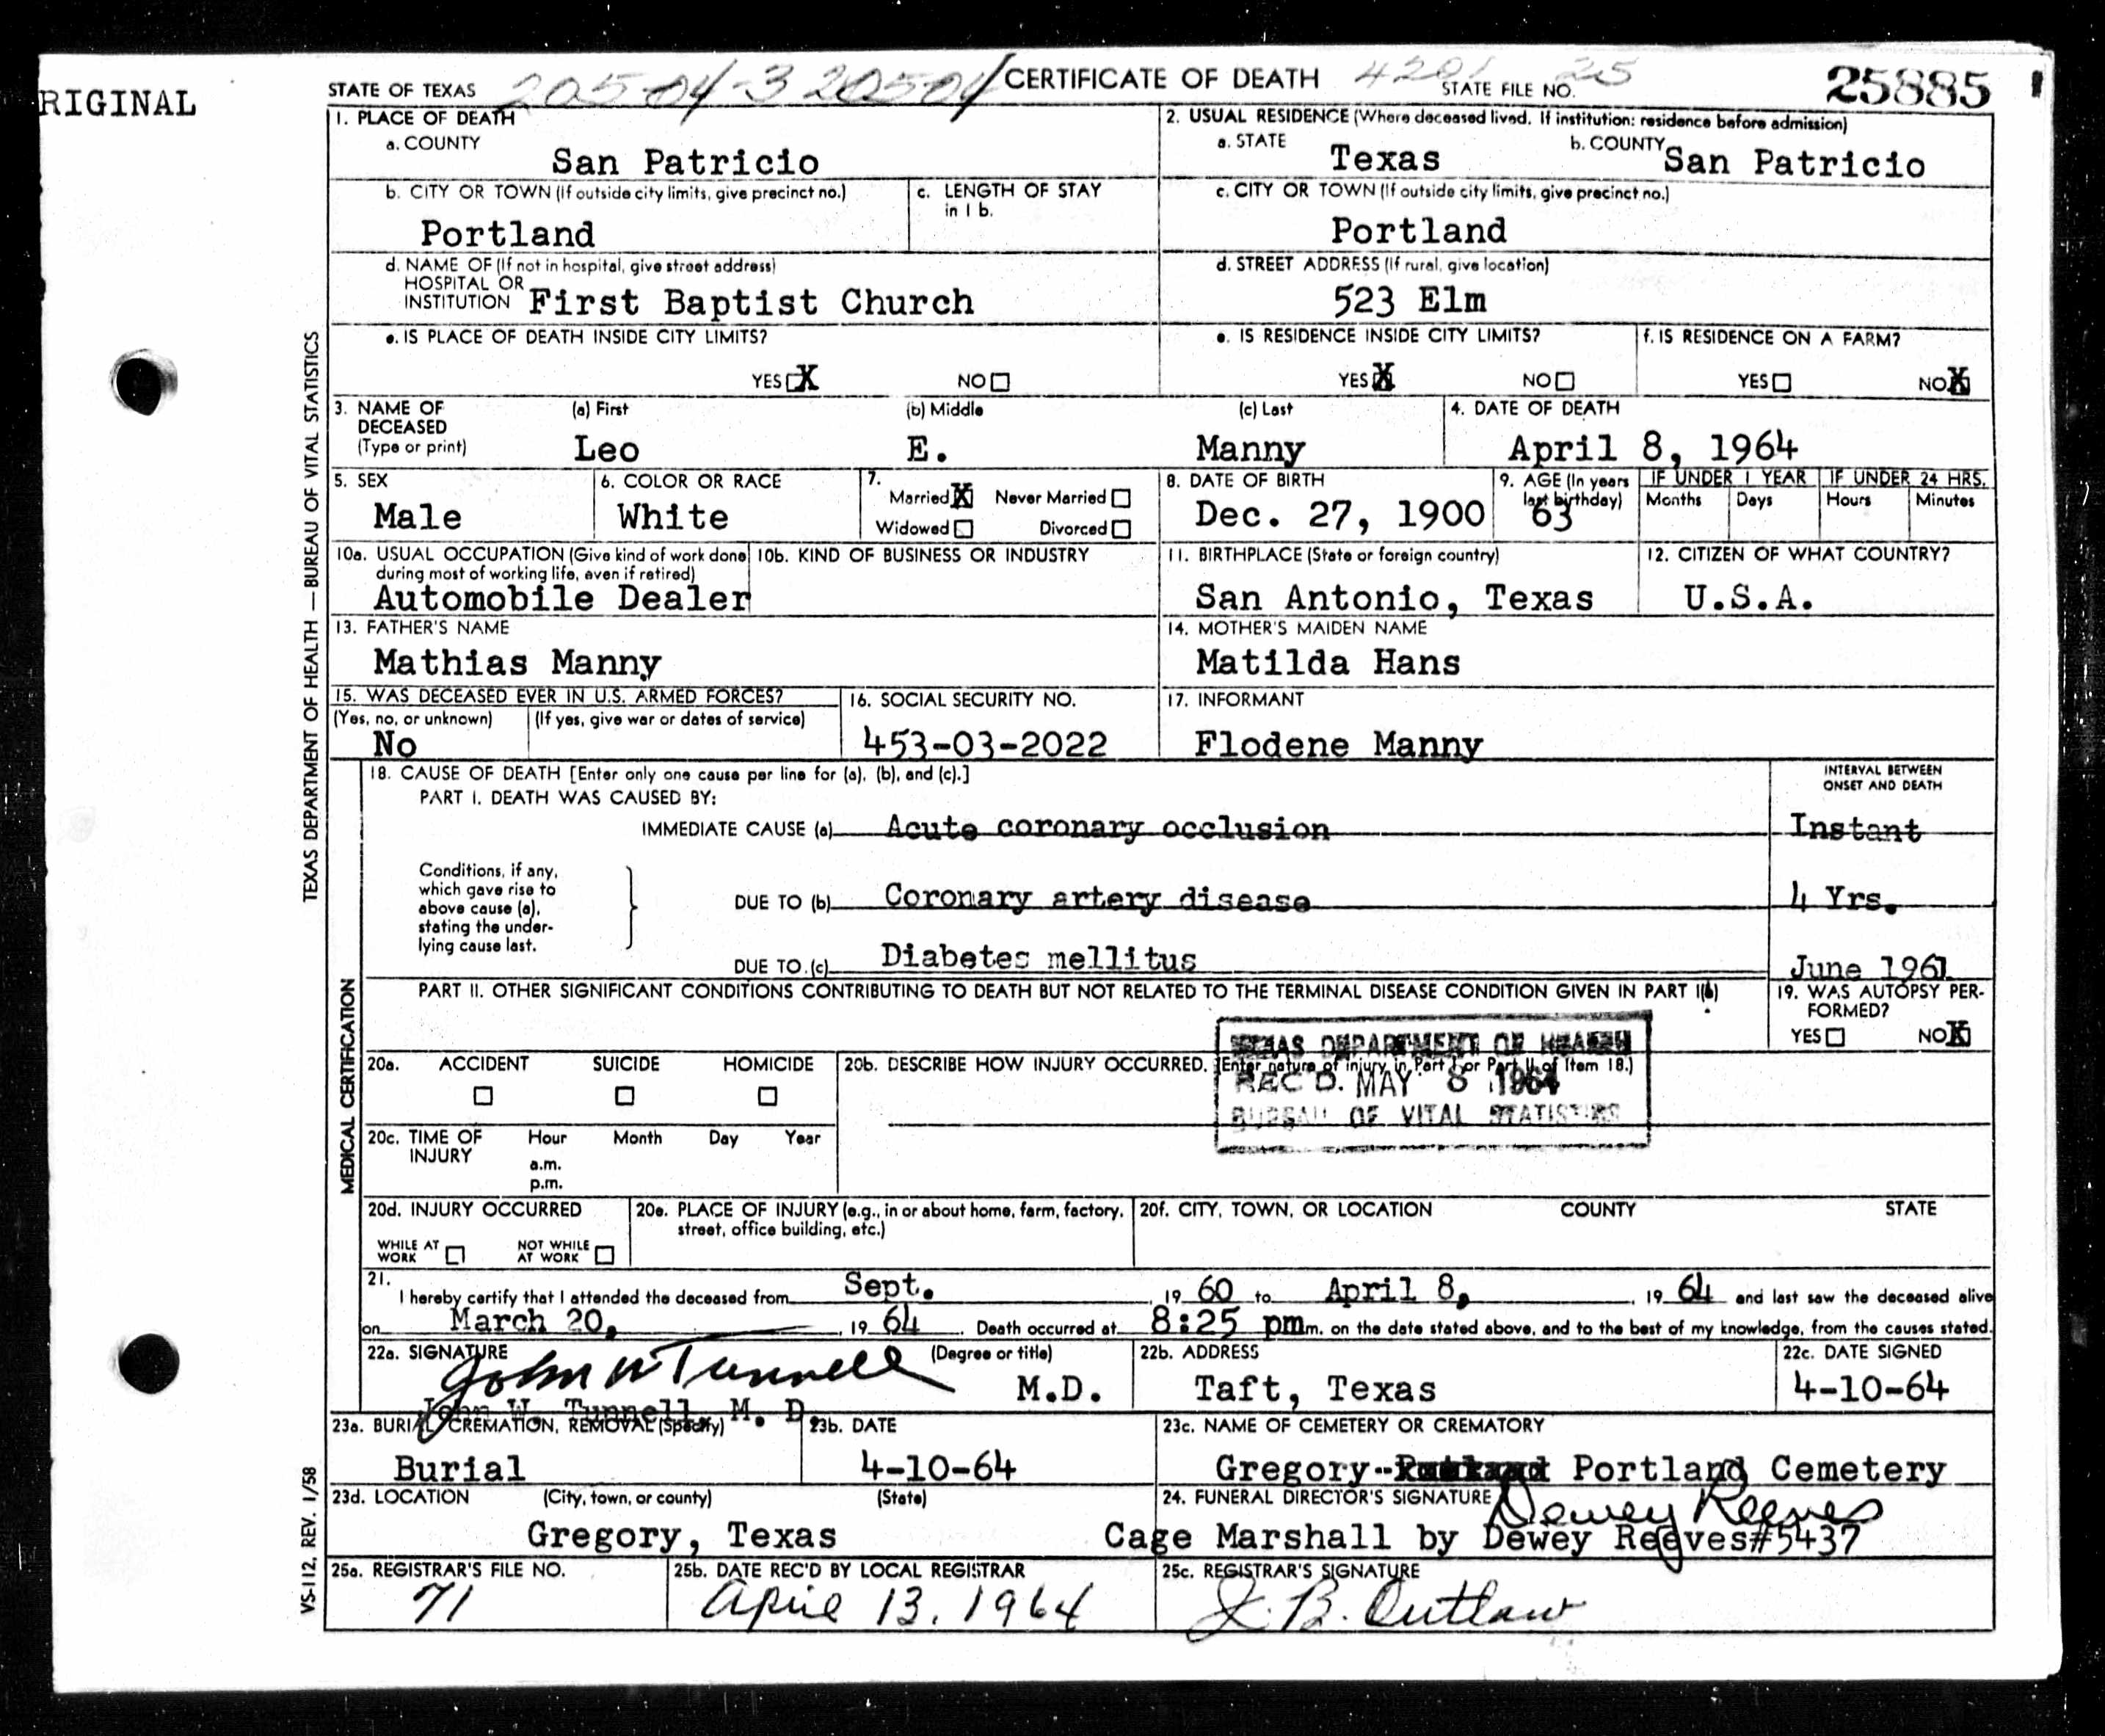 RIGINAL
STATE OF TEXAS 205-04-3 20504 CERTIFICATE OF DEATH 4201 25 STATE FILE NO. 25885
TEXAS DEPARTMENT OF HEALTH — BUREAU OF VITAL STATISTICS
1. PLACE OF DEATH
a. COUNTY
San Patricio
2. USUAL RESIDENCE (Where deceased lived. If institution: residence before admission)
a. STATE Texas b. COUNTY San Patricio
b. CITY OR TOWN (If outside city limits, give precinct no.)
Portland
c. LENGTH OF STAY
in 1 b.
c. CITY OR TOWN (If outside city limits, give precinct no.)
Portland
d. NAME OF (If not in hospital, give street address)
HOSPITAL OR
INSTITUTION First Baptist Church
d. STREET ADDRESS (If rural, give location)
523 Elm
e. IS PLACE OF DEATH INSIDE CITY LIMITS?
YES X NO
e. IS RESIDENCE INSIDE CITY LIMITS?
YES X NO
f. IS RESIDENCE ON A FARM?
YES NO X
3. NAME OF
DECEASED
(Type or print)
(a) First (b) Middle (c) Last
Leo E. Manny
4. DATE OF DEATH
April 8, 1964
5. SEX
Male
6. COLOR OR RACE
White
7.
Married X Never Married
Widowed Divorced
8. DATE OF BIRTH
Dec. 27, 1900
9. AGE (In years
last birthday)
63
IF UNDER 1 YEAR IF UNDER 24 HRS.
Months Days Hours Minutes
10a. USUAL OCCUPATION (Give kind of work done
during most of working life, even if retired)
Automobile Dealer
10b. KIND OF BUSINESS OR INDUSTRY
11. BIRTHPLACE (State or foreign country)
San Antonio, Texas
12. CITIZEN OF WHAT COUNTRY?
U.S.A.
13. FATHER'S NAME
Mathias Manny
14. MOTHER'S MAIDEN NAME
Matilda Hans
15. WAS DECEASED EVER IN U.S. ARMED FORCES?
(Yes, no, or unknown) (If yes, give war or dates of service)
No
16. SOCIAL SECURITY NO.
453-03-2022
17. INFORMANT
Flodene Manny
MEDICAL CERTIFICATION
18. CAUSE OF DEATH [Enter only one cause per line for (a), (b), and (c).]
INTERVAL BETWEEN
ONSET AND DEATH
PART I. DEATH WAS CAUSED BY:
IMMEDIATE CAUSE (a) Acute coronary occlusion Instant
Conditions, if any,
which gave rise to
above cause (a),
stating the under-
lying cause last.
DUE TO (b) Coronary artery disease 4 Yrs.
DUE TO (c) Diabetes mellitus June 1961
PART II. OTHER SIGNIFICANT CONDITIONS CONTRIBUTING TO DEATH BUT NOT RELATED TO THE TERMINAL DISEASE CONDITION GIVEN IN PART I(a)
19. WAS AUTOPSY PER-
FORMED?
YES NO X
TEXAS DEPARTMENT OF HEALTH
REC'D. MAY 8 1964
BUREAU OF VITAL STATISTICS
20a. ACCIDENT SUICIDE HOMICIDE
20b. DESCRIBE HOW INJURY OCCURRED. (Enter nature of injury in Part I or Part II of Item 18.)
20c. TIME OF
INJURY
Hour Month Day Year
a.m.
p.m.
20d. INJURY OCCURRED
WHILE AT
WORK
NOT WHILE
AT WORK
20e. PLACE OF INJURY (e.g., in or about home, farm, factory,
street, office building, etc.)
20f. CITY, TOWN, OR LOCATION COUNTY STATE
21.
I hereby certify that I attended the deceased from Sept. , 19 60 to April 8, , 19 64 and last saw the deceased alive
on March 20, , 19 64. Death occurred at 8:25 pm m. on the date stated above, and to the best of my knowledge, from the causes stated.
22a. SIGNATURE (Degree or title)
John W Tunnell M.D.
John W. Tunnell, M. D.
22b. ADDRESS
Taft, Texas
22c. DATE SIGNED
4-10-64
23a. BURIAL, CREMATION, REMOVAL (Specify)
Burial
23b. DATE
4-10-64
23c. NAME OF CEMETERY OR CREMATORY
Gregory- Portland Cemetery
23d. LOCATION (City, town, or county) (State)
Gregory, Texas
24. FUNERAL DIRECTOR'S SIGNATURE
Dewey Reeves
Cage Marshall by Dewey Reeves#5437
25a. REGISTRAR'S FILE NO.
71
25b. DATE REC'D BY LOCAL REGISTRAR
April 13, 1964
25c. REGISTRAR'S SIGNATURE
J. B. Outlaw
VS-112, REV. 1/58